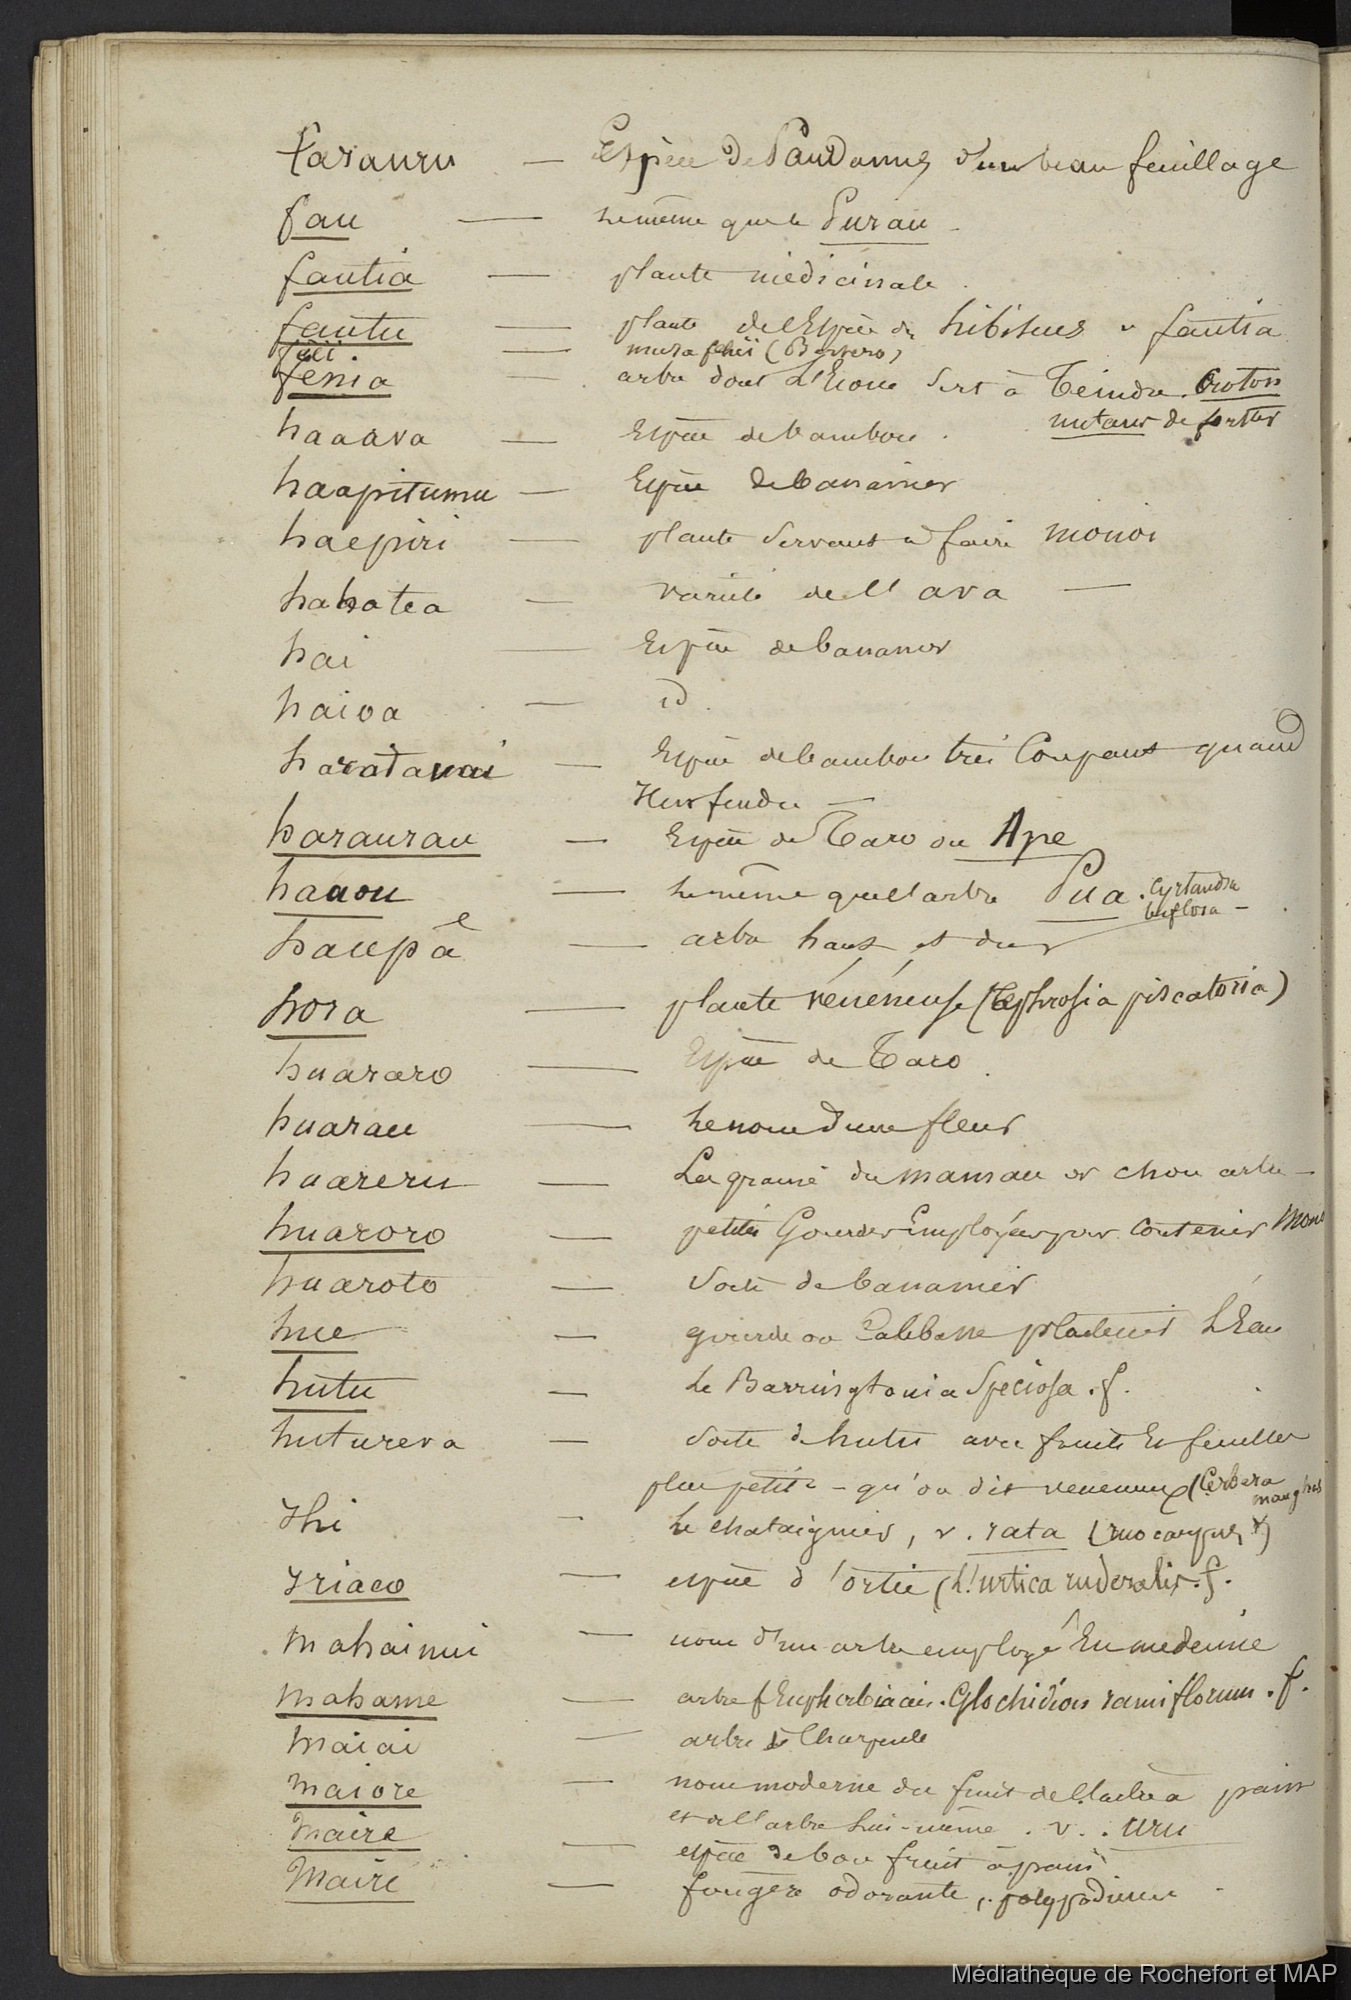 farauru — Espèce de Pandanus d'un beau feuillage
fau — le même que le Purau -
fautia — plante médicinale .
fautu — plante de l'Espèce du hibiscus v fautia
feii. — musa fehii (Bertero)
fenia — arbre dont L'Ecorce sert à Teindre. Croton
haaava — Espèce de bambou . metaur de forster
haapitumu — Espèce de bananier
haepiri — plante servant à faire monoi
hahatea — variété de l'ava —
hai — Espèce de bananier
haioa — id.
haratavai — Espèce de bambou très Coupant quand
Il est fendu —
haraurau — Espèce de Taro ou Ape
hauou — le même que l'arbre Pua. Cyrtandra
biflora -
haupâe — arbre haut et dur
hora — plante vénéneuse (Tephrosia piscatoria)
huararo — Espèce de Taro.
huarau — le nom d'une fleur
huareru — La graine du mamau or chou arbre -
huaroro — petites Gourdes Employées pour Contenir Mono
huaroto — sorte de bananier
hue — gourde ou Calebasse l'Eau
hutu — Le Barringtonia Speciosa . f.
hutureva — sorte de hutu avec fruits Et feuilles
plus petits - qu'on dit veneneux (Cerbera
manghas
Ihi — le chataignier, v. rata (inocarpus)
Iriaeo — espèce d'ortie (L'urtica ruderalis. f.
mahainui — nom d'un arbre employé En medecine
mahame — arbre Euphorbiacée. Glochidion ramiflorum . f.
maiai — arbre de Charpente
maiore — nom moderne du fruit de l'arbre à pain
et de l'arbre lui-même . v. . uru
maire — espèce de bon fruit à pain
Maire — fougère odorante, polypodium
Médiathèque de Rochefort et MAP